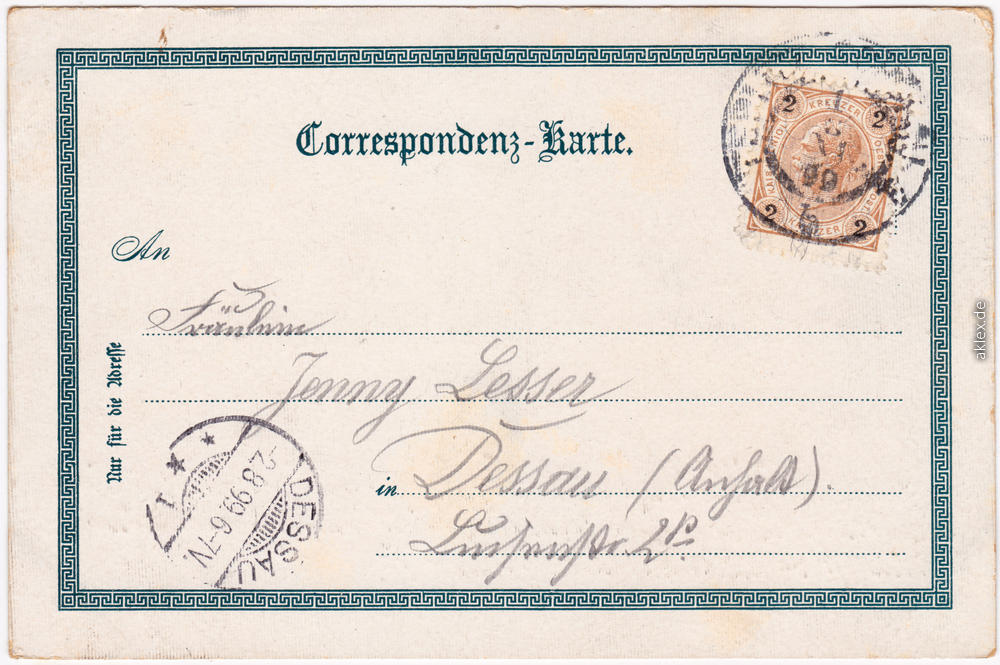 Correspondenz-Karte.
2 KREUZER 2
2 KREUZER 2
99
An
Fräulein
Jenny Lesser
in Dessau (Anhalt).
Nur für die Adresse
DESSAU
-2.8.99.6-7V
* * 1
aklex.de